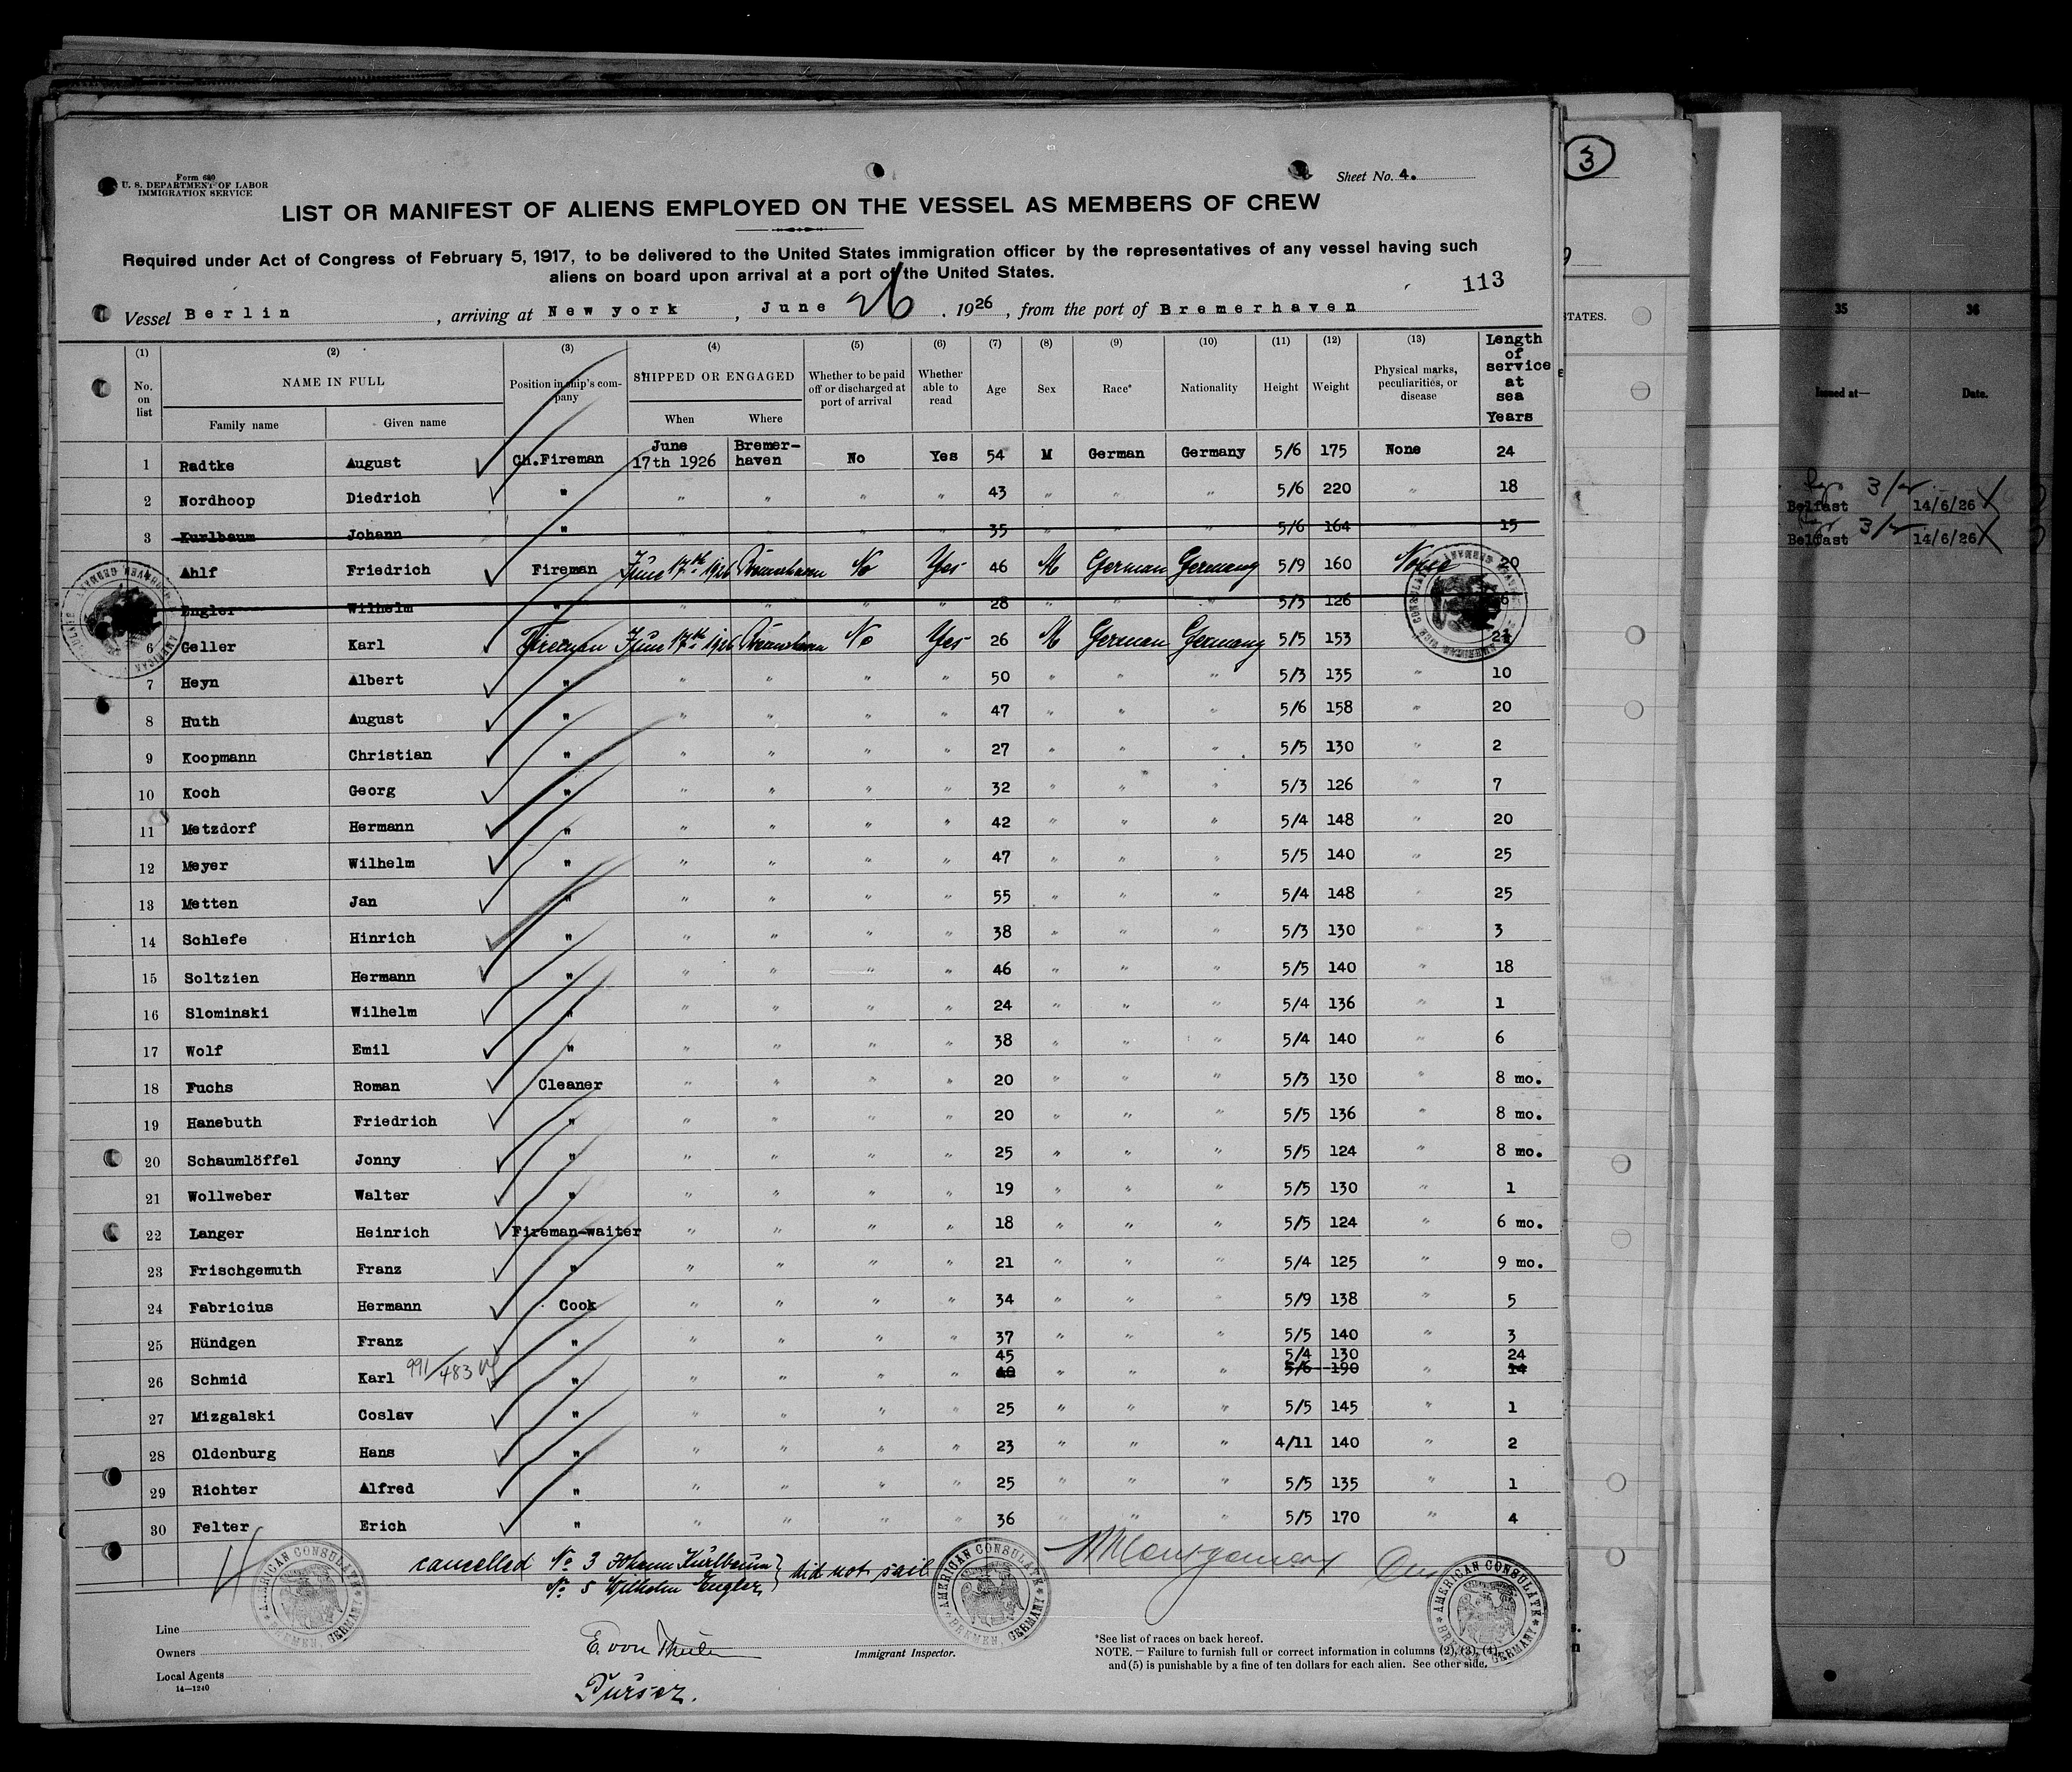 Form 689
U. S. DEPARTMENT OF LABOR
IMMIGRATION SERVICE
Sheet No. 4.
3
LIST OR MANIFEST OF ALIENS EMPLOYED ON THE VESSEL AS MEMBERS OF CREW
Required under Act of Congress of February 5, 1917, to be delivered to the United States immigration officer by the representatives of any vessel having such
aliens on board upon arrival at a port of the United States.
113
Vessel Berlin, arriving at New york, June 26, 1926, from the port of Bremerhaven
(1) (2) (3) (4) (5) (6) (7) (8) (9) (10) (11) (12) (13)
No. on list NAME IN FULL Family name Given name Position in ship's company SHIPPED OR ENGAGED When Where Whether to be paid off or discharged at port of arrival Whether able to read Age Sex Race* Nationality Height Weight Physical marks, peculiarities, or disease Length of service at sea Years
1 Radtke August Ch.Fireman June 17th 1926 Bremer-haven No Yes 54 M German Germany 5/6 175 None 24
2 Nordhoop Diedrich " " " " " 43 " " " 5/6 220 " 18
3 Kurlbaum Johann " " " " " 35 " " " 5/6 164 " 15
Ahlf Friedrich Fireman June 17th 1926 Bremerhaven No Yes 46 M German Germany 5/9 160 None 20
Engler Wilhelm " " " " " 28 " " " 5/3 126 6
6 Geller Karl Fireman June 17th 1926 Bremerhaven No Yes 26 M German Germany 5/5 153
7 Heyn Albert " " " " " 50 " " " 5/3 135 " 10
8 Huth August " " " " " 47 " " " 5/6 158 " 20
9 Koopmann Christian " " " " " 27 " " " 5/5 130 " 2
10 Koch Georg " " " " " 32 " " " 5/3 126 " 7
11 Metzdorf Hermann " " " " " 42 " " " 5/4 148 " 20
12 Meyer Wilhelm " " " " " 47 " " " 5/5 140 " 25
13 Metten Jan " " " " " 55 " " " 5/4 148 " 25
14 Schlefe Hinrich " " " " " 38 " " " 5/3 130 " 3
15 Soltzien Hermann " " " " " 46 " " " 5/5 140 " 18
16 Slominski Wilhelm " " " " " 24 " " " 5/4 136 " 1
17 Wolf Emil " " " " " 38 " " " 5/4 140 " 6
18 Fuchs Roman Cleaner " " " " 20 " " " 5/3 130 " 8 mo.
19 Hanebuth Friedrich " " " " " 20 " " " 5/5 136 " 8 mo.
20 Schaumlöffel Jonny " " " " " 25 " " " 5/5 124 " 8 mo.
21 Wollweber Walter " " " " " 19 " " " 5/5 130 " 1
22 Langer Heinrich Fireman-waiter " " " " 18 " " " 5/5 124 " 6 mo.
23 Frischgemuth Franz " " " " " 21 " " " 5/4 125 " 9 mo.
24 Fabricius Hermann Cook " " " " 34 " " " 5/9 138 " 5
25 Hündgen Franz " " " " " 37 " " " 5/5 140 " 3
45 5/4 130 24
26 Schmid Karl 991/483 " " " " " 40 " " " 5/6 190 " 14
27 Mizgalski Coslav " " " " " 25 " " " 5/5 145 " 1
28 Oldenburg Hans " " " " " 23 " " " 4/11 140 " 2
29 Richter Alfred " " " " " 25 " " " 5/5 135 " 1
30 Felter Erich " " " " " 36 " " " 5/5 170 " 4
cancelled No 3 Johann Kurlbaum } did not sail
No 5 Wilhelm Engler
AMERICAN CONSULATE BREMEN, GERMANY
AMERICAN CONSULATE BREMEN, GERMANY
AMERICAN CONSULATE BREMEN, GERMANY
Montgomery
Line
Owners
Local Agents
14—1240
E. von Thülen
Purser.
Immigrant Inspector.
*See list of races on back hereof.
NOTE. — Failure to furnish full or correct information in columns (2), (3), (4),
and (5) is punishable by a fine of ten dollars for each alien. See other side.
TATES.
35 36
Issued at— Date.
Belfast 14/6/26
Belfast 14/6/26